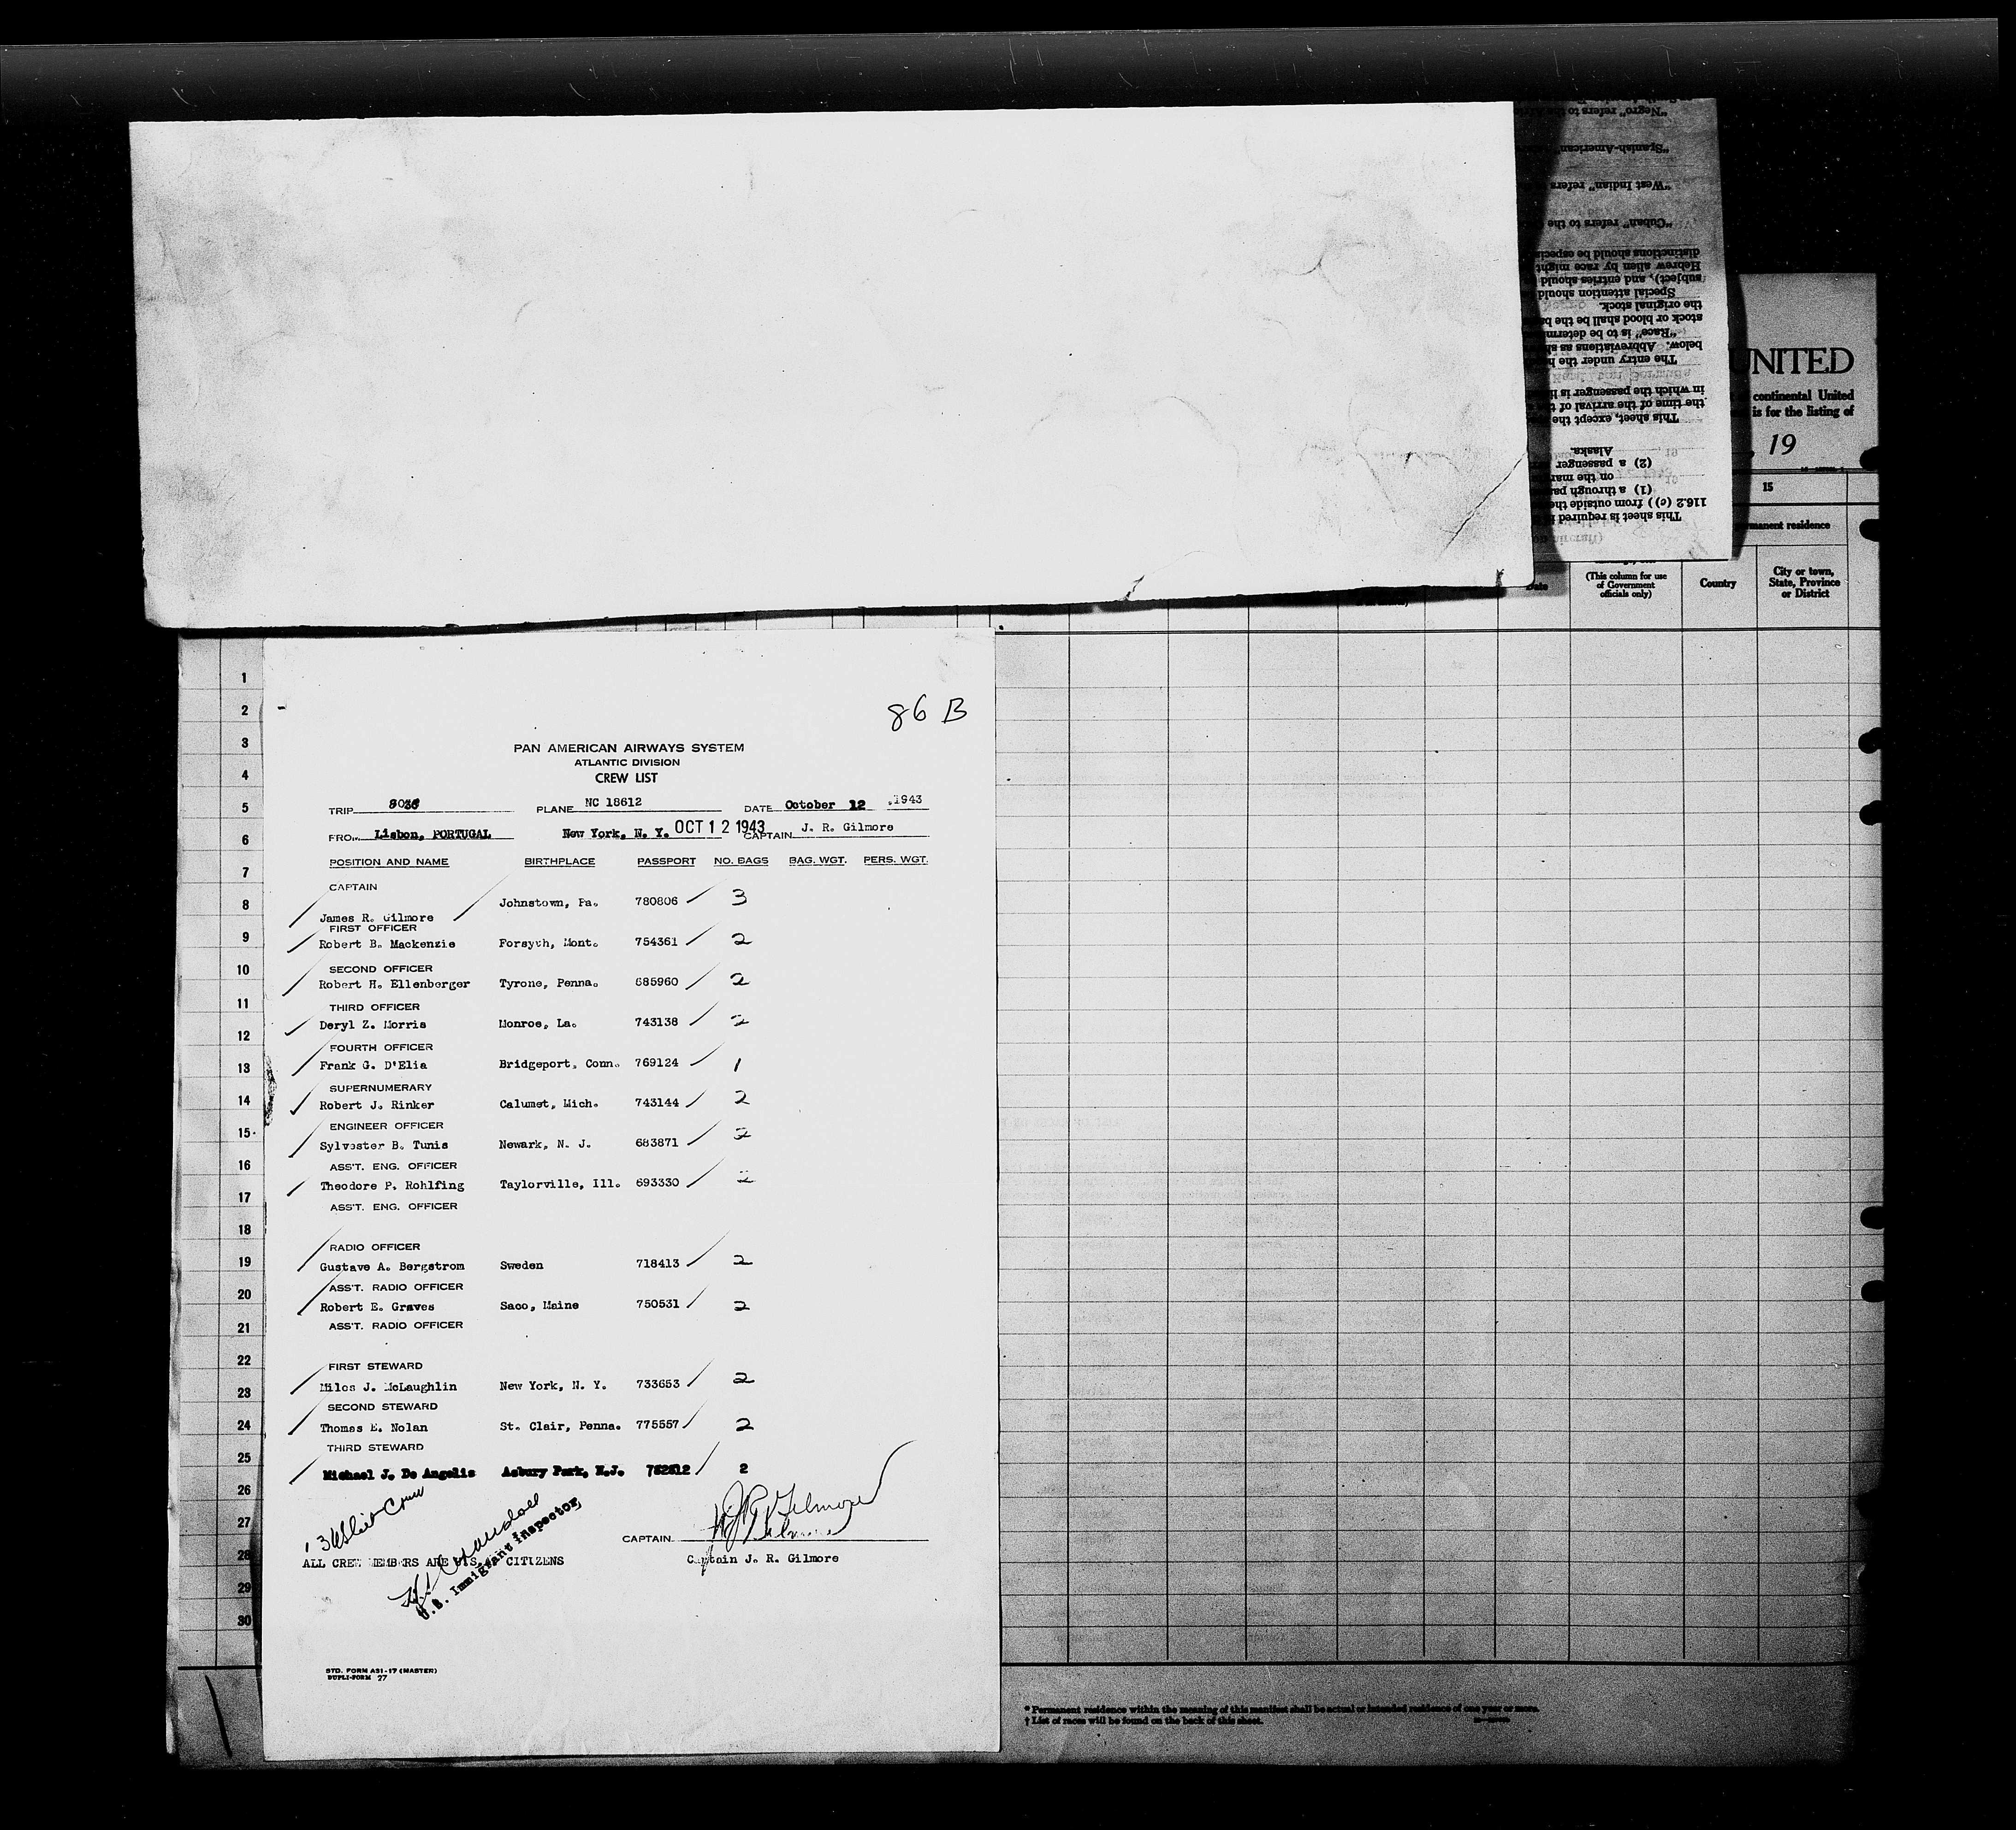 "Negro" refers to the
"Spanish-American"
"West Indian" refers
"Cuban" refers to the
distinctions should be especia
Hebrew alien by race might
subject), and entries should
Special attention should
the original stock.
stock or blood shall be the ba
"Race" is to be determ
below. Abbreviations as sh
The entry under the h
in which the passenger is li
the time of the arrival of t
This sheet, except the
Alaska.
(2) a passenger
on the man
(1) a through pa
116.2 (c)) from outside the
This sheet is required
aircraft)
UNITED
continental United
is for the listing of
, 19
15
permanent residence
Date
(This column for use of Government officials only)
Country
City or town, State, Province or District
86 B
PAN AMERICAN AIRWAYS SYSTEM
ATLANTIC DIVISION
CREW LIST
TRIP PLANE NC 18612 DATE October 12 ,1943
FROM Lisbon, PORTUGAL New York, N. Y. OCT 12 1943 CAPTAIN J. R. Gilmore
POSITION AND NAME BIRTHPLACE PASSPORT NO. BAGS BAG. WGT. PERS. WGT.
CAPTAIN
James R. Gilmore Johnstown, Pa. 780806 3
FIRST OFFICER
Robert B. Mackenzie Forsyth, Mont. 754361 2
SECOND OFFICER
Robert H. Ellenberger Tyrone, Penna. 685960 2
THIRD OFFICER
Deryl Z. Morris Monroe, La. 743138 2
FOURTH OFFICER
Frank G. D'Elia Bridgeport, Conn. 769124 1
SUPERNUMERARY
Robert J. Rinker Calumet, Mich. 743144 2
ENGINEER OFFICER
Sylvester B. Tunis Newark, N. J. 683871 2
ASS'T. ENG. OFFICER
Theodore P. Rohlfing Taylorville, Ill. 693330 2
ASS'T. ENG. OFFICER
RADIO OFFICER
Gustave A. Bergstrom Sweden 718413 2
ASS'T. RADIO OFFICER
Robert E. Graves Saco, Maine 750531 2
ASS'T. RADIO OFFICER
FIRST STEWARD
Miles J. McLaughlin New York, N. Y. 733653 2
SECOND STEWARD
Thomas E. Nolan St. Clair, Penna. 775557 2
THIRD STEWARD
Michael J. De Angelis Asbury Park, N.J. 2
U.S. Immigrant Inspector
CAPTAIN J R Gilmore
ALL CREW MEMBERS ARE U.S. CITIZENS Captain J. R. Gilmore
STD. FORM AS1-17 (MASTER)
DUPLI-FORM 27
1
2
3
4
5
6
7
8
9
10
11
12
13
14
15
16
17
18
19
20
21
22
23
24
25
26
27
28
29
30
* Permanent residence within the meaning of this manifest shall be actual or intended residence of one year or more.
† List of races will be found on the back of this sheet.